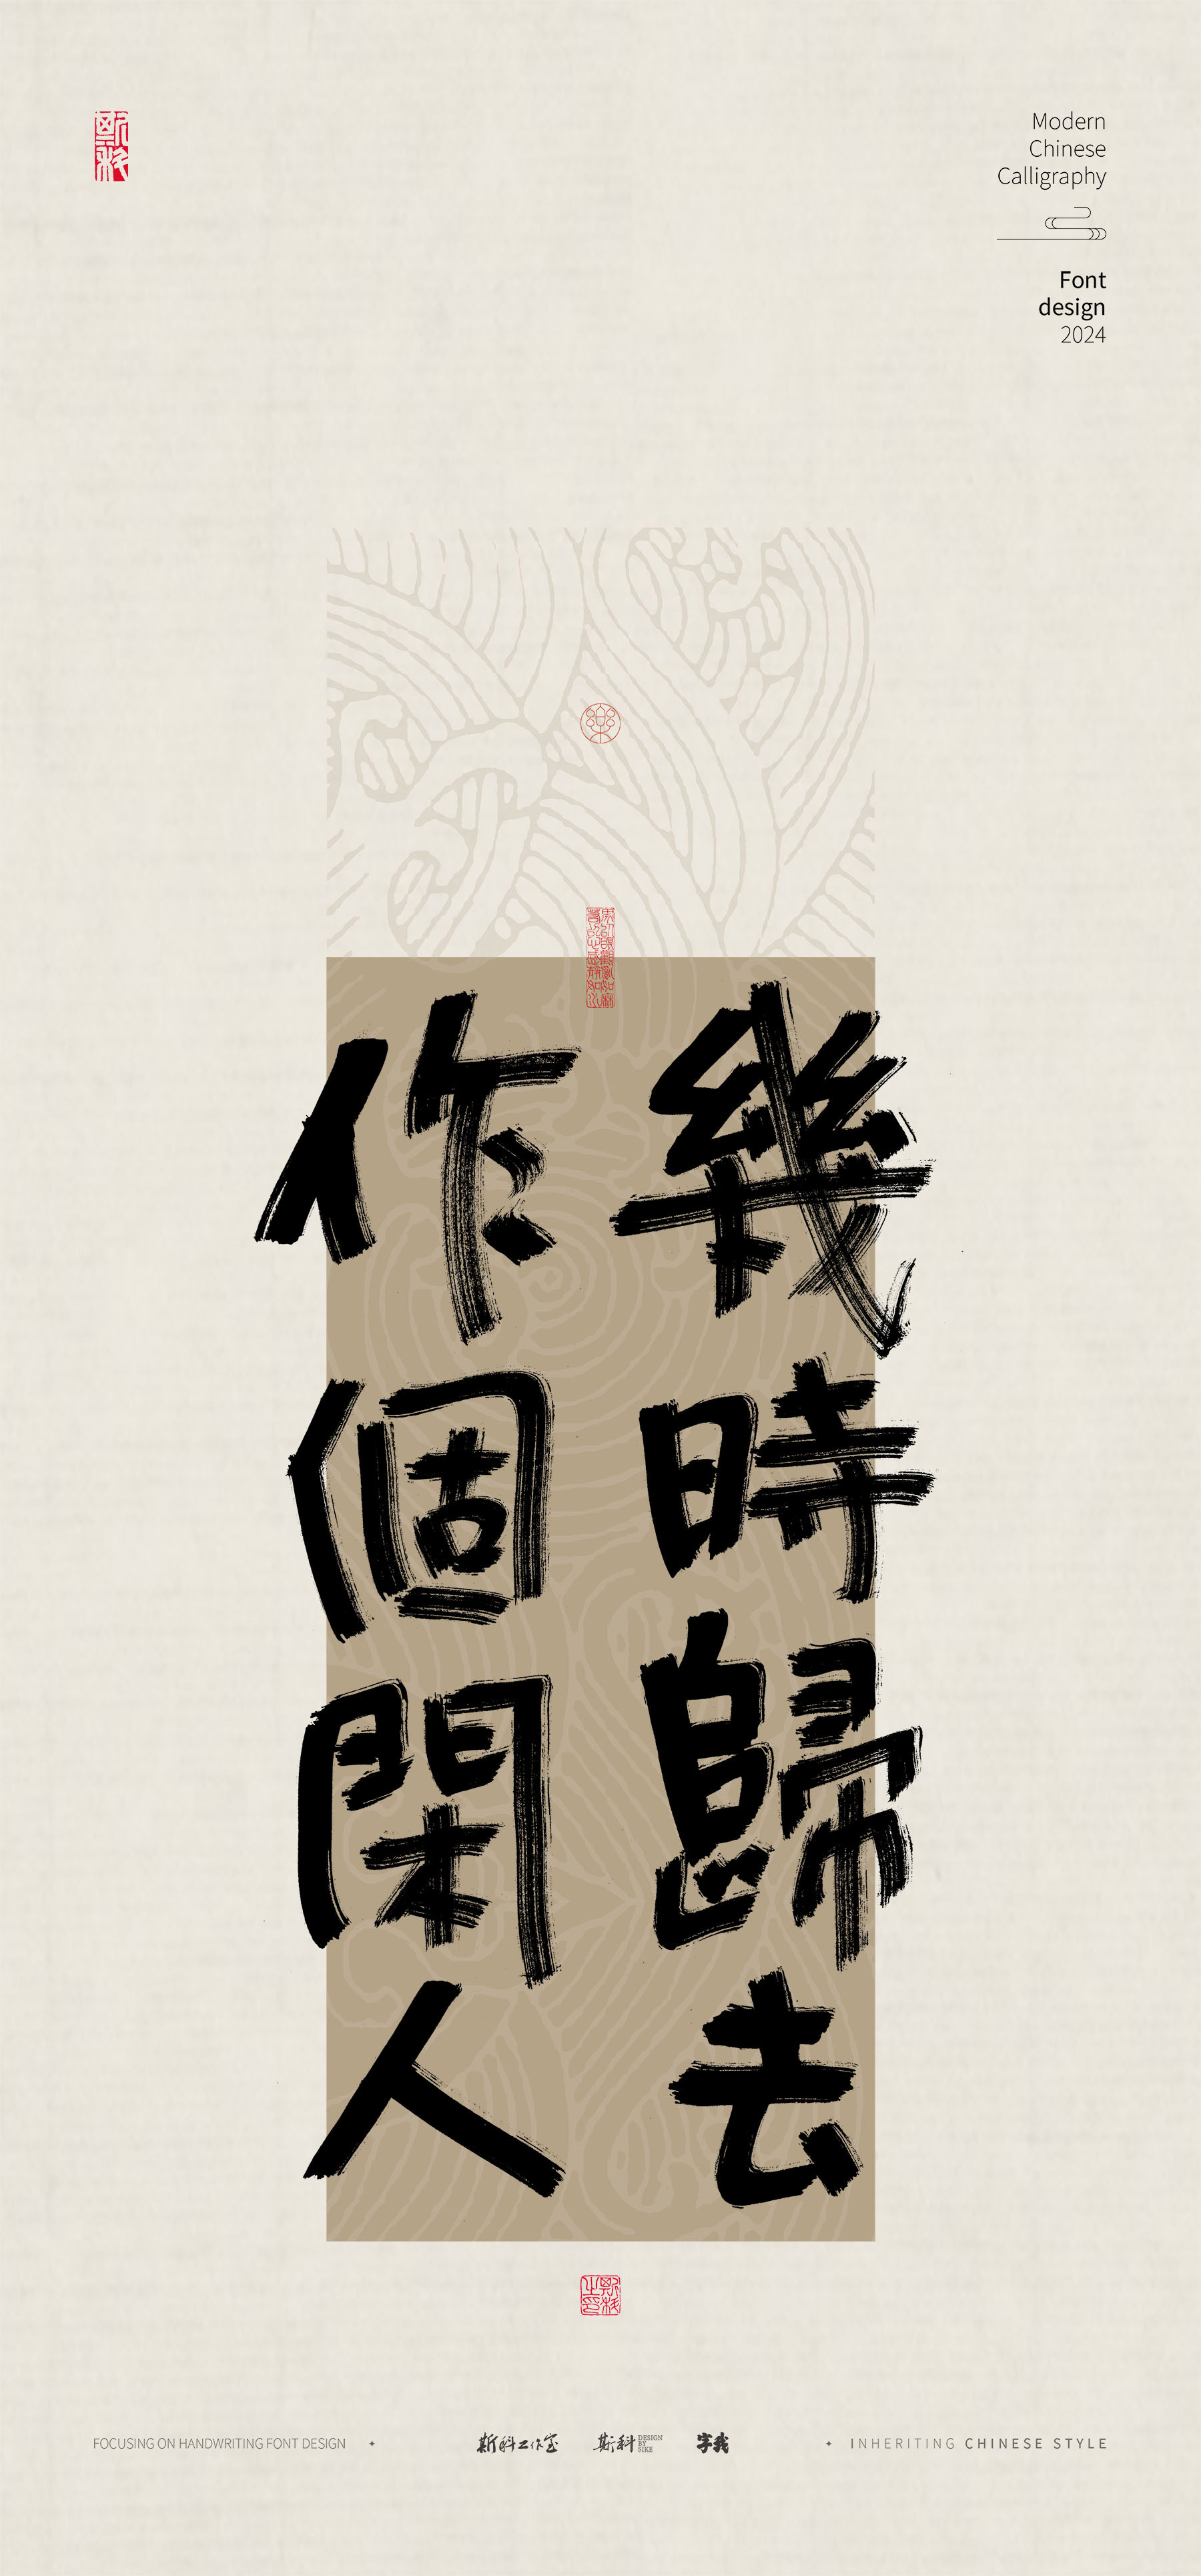 斯科
Modern
Chinese
Calligraphy
Font
design
2024
幾時歸去
作個閑人
斯科之印
FOCUSING ON HANDWRITING FONT DESIGN
斯科工作室
斯科
DESIGN
BY
SIKE
字我
INHERITING CHINESE STYLE